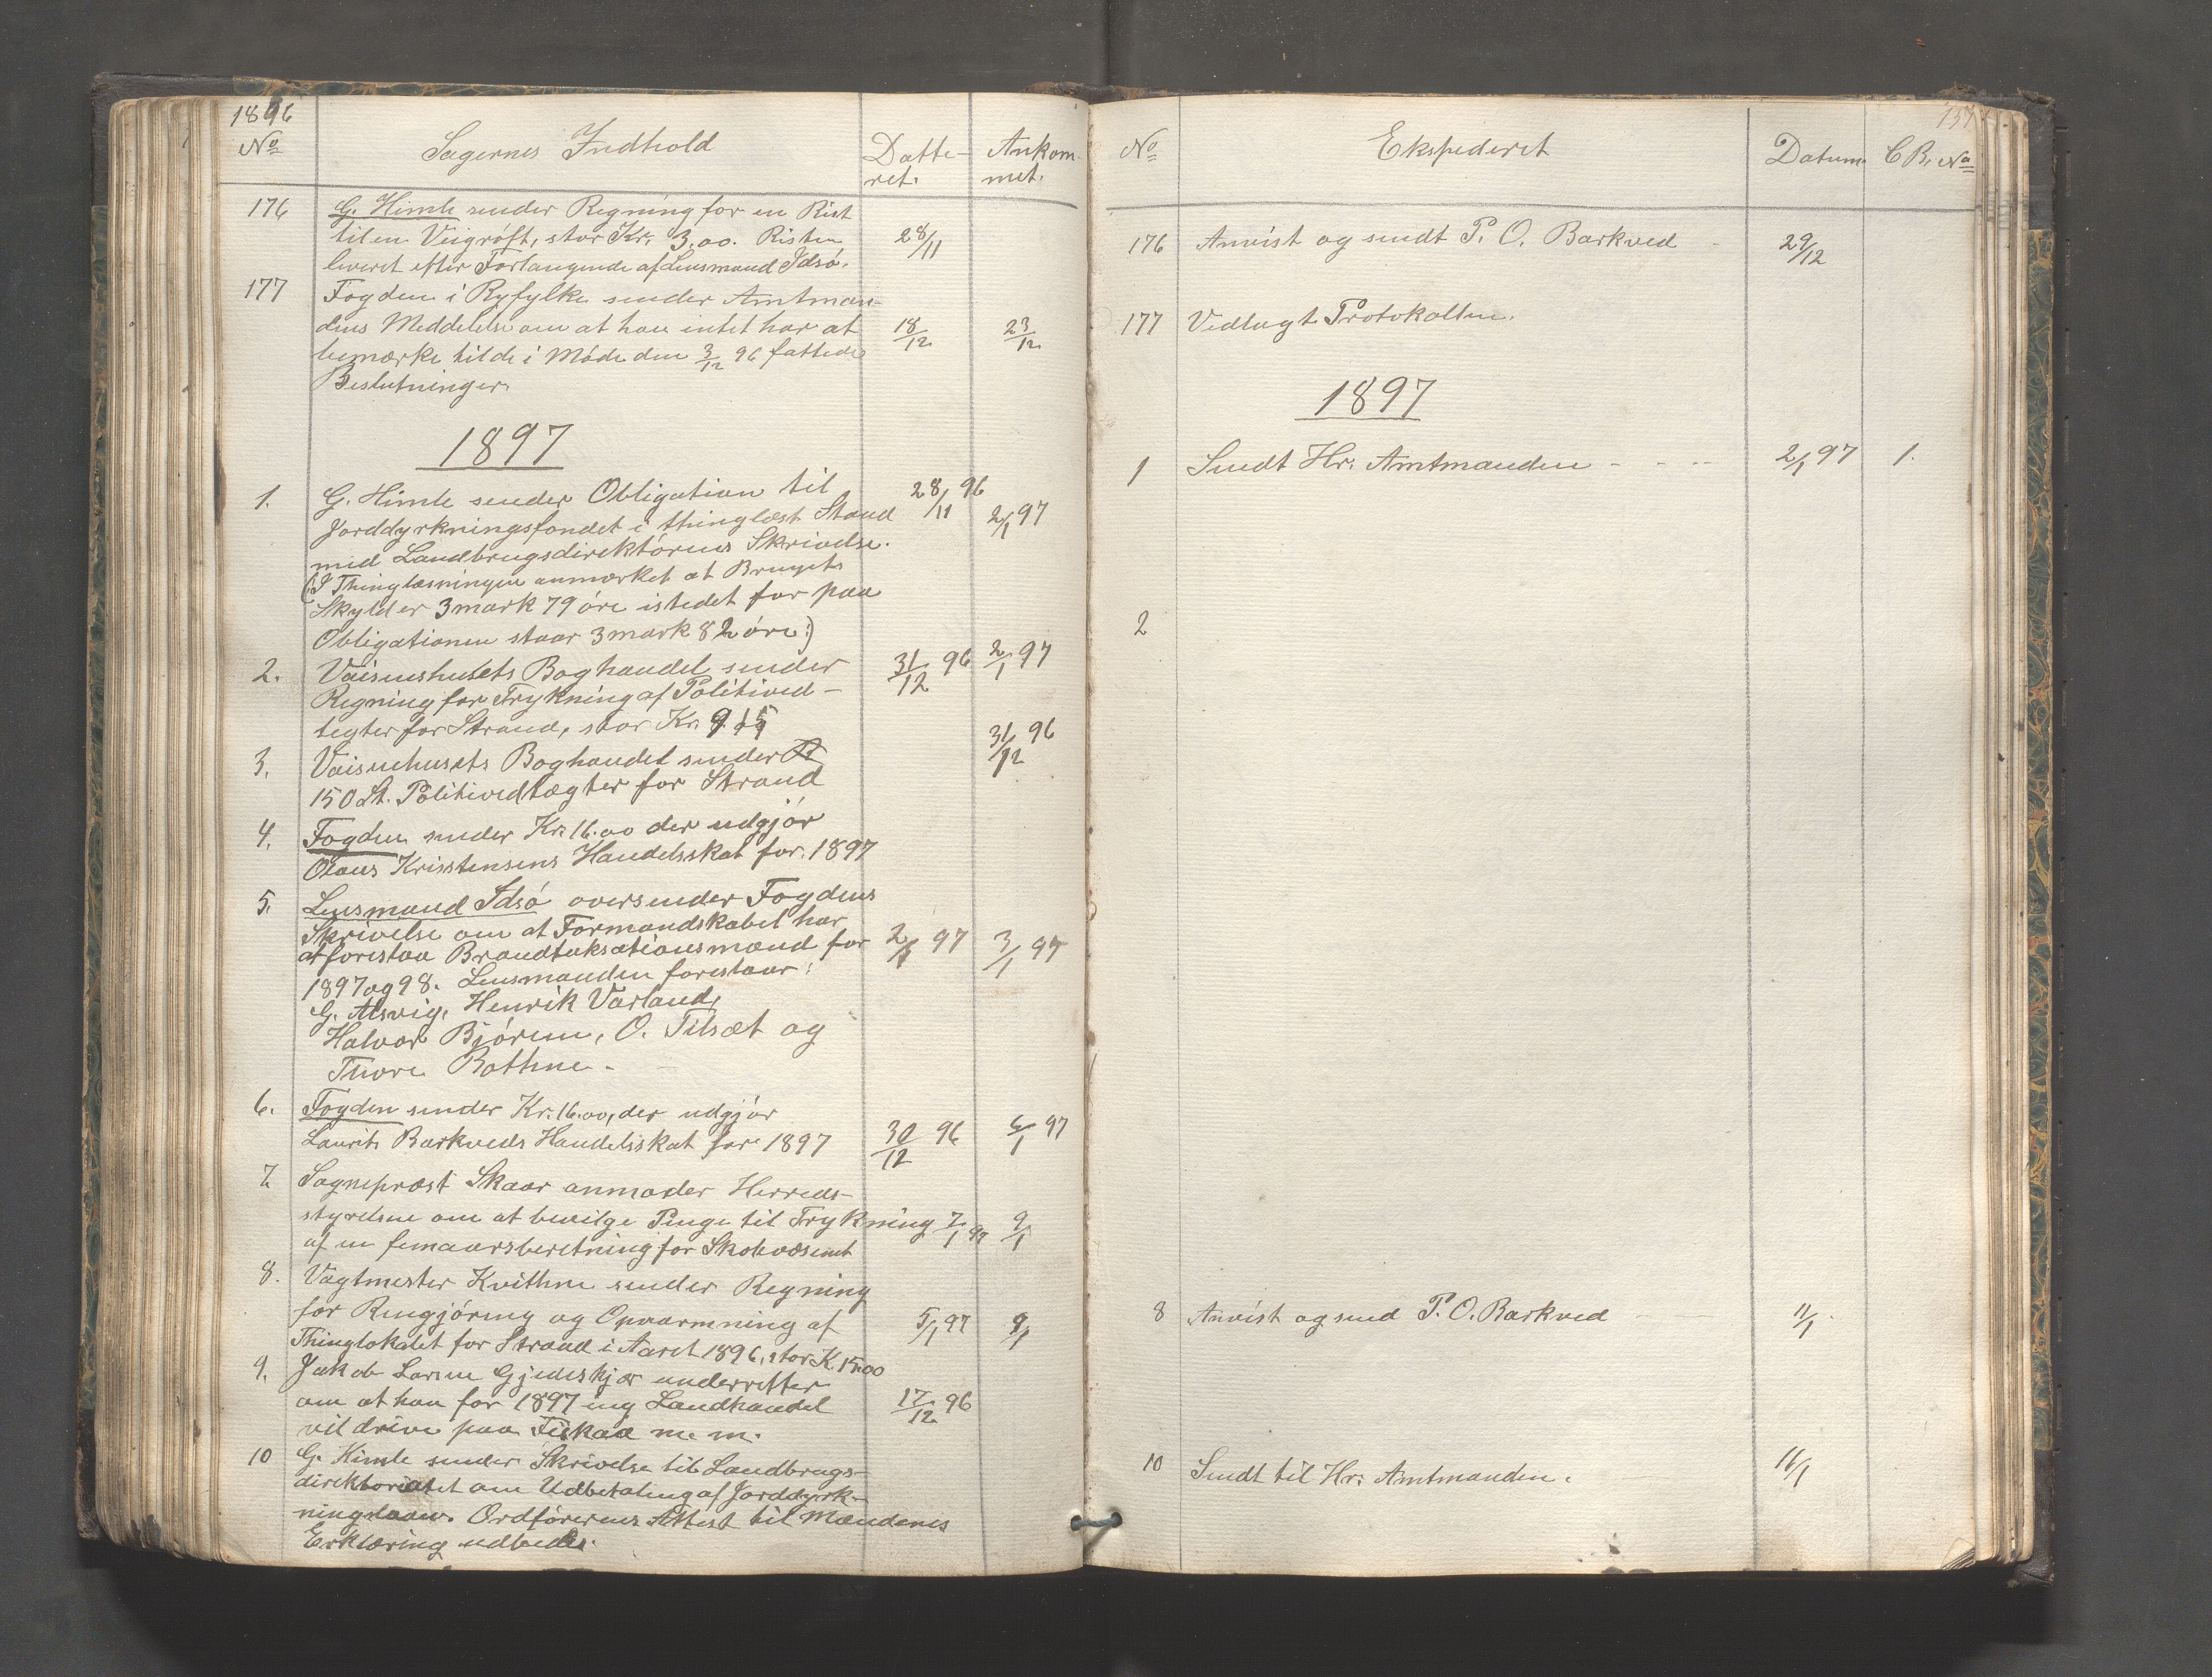 1896
No Sagernes Indhold Datte- Ankom-
ret. met.
176 G. Himle sender Regning for en Rist
til en Veigrøft, stor Kr. 3.00. Risten 28/11
leveret efter Forlangende af Lensmand Idsø.
177 Fogden i Ryfylke sender Amtman-
dens Meddelelse om at han intet har at 18/12 23/12
bemærke til de i Møde den 3/12 96 fattede
Beslutninger.
1897
1. G. Himle sender Obligation til 28/11 96
Jorddyrkningsfondet i thinglæst Stand 2/1 97
med Landbrugsdirektørens Skrivelse.
(:I Thinglæsningen anmærket at Brugets
Skyld er 3 mark 79 øre istedet for paa
Obligationen staar 3 mark 82 øre:)
2. Vaisenhusets Boghandel sender 31/12 96 2/1 97
Regning for Trykning af Politived-
tegter for Strand, stor Kr. 9.15
3. Vaisenhusets Boghandel sender 31/12 96
150 St. Politivedtægter for Strand
4. Fogden sender Kr. 16.00 der udgjør
Olaus Kristensens Handelsskat for 1897
5. Lensmand Idsø oversender Fogdens
Skrivelse om at Formandskabet har
at forestaa Brandtaksationsmænd for 2/1 97 3/1 97
1897 og 98. Lensmanden forestaar:
G. Alsvig, Henrik Varland,
Halvor Bjøren, O. Tilsæt og
Thore Bothne.
6. Fogden sender Kr. 16.00, der udgjør
Laurits Barkveds Handelsskat for 1897 30/12 96 6/1 97
7. Sognepræst Skaar anmoder Herreds-
styrelsen om at bevilge Penge til Trykning 7/1 97 9/1
af en femaarsberetning for Skolevæsenet
8. Vagtmester Kvithne sender Regning
for Rengjøring og Opvarmning af 5/1 97 9/1
Thinglokalet for Strand i Aaret 1896, stor K. 15.00
9. Jakob Larsen Gjedeskjær underretter
om at han for 1897 ing Landhandel 17/12 96
vil drive paa Fiskaa m. m.
10 G. Himle sender Skrivelse til Landbrugs-
direktoriatet om Udbetaling af Jorddyrk-
ningslaan. Ordførerens Attest til Mændenes
Erklæring udbedes.
157
No Ekspederet Datum C B. No
176 Anvist og sendt P. O. Barkved 29/12
177 Vedlagt Protokollen.
1897
1 Sendt Hr. Amtmanden - - - 2/1 97 1.
2
8 Anvist og send P. O. Barkved 11/1
10 Sendt til Hr. Amtmanden. 16/1